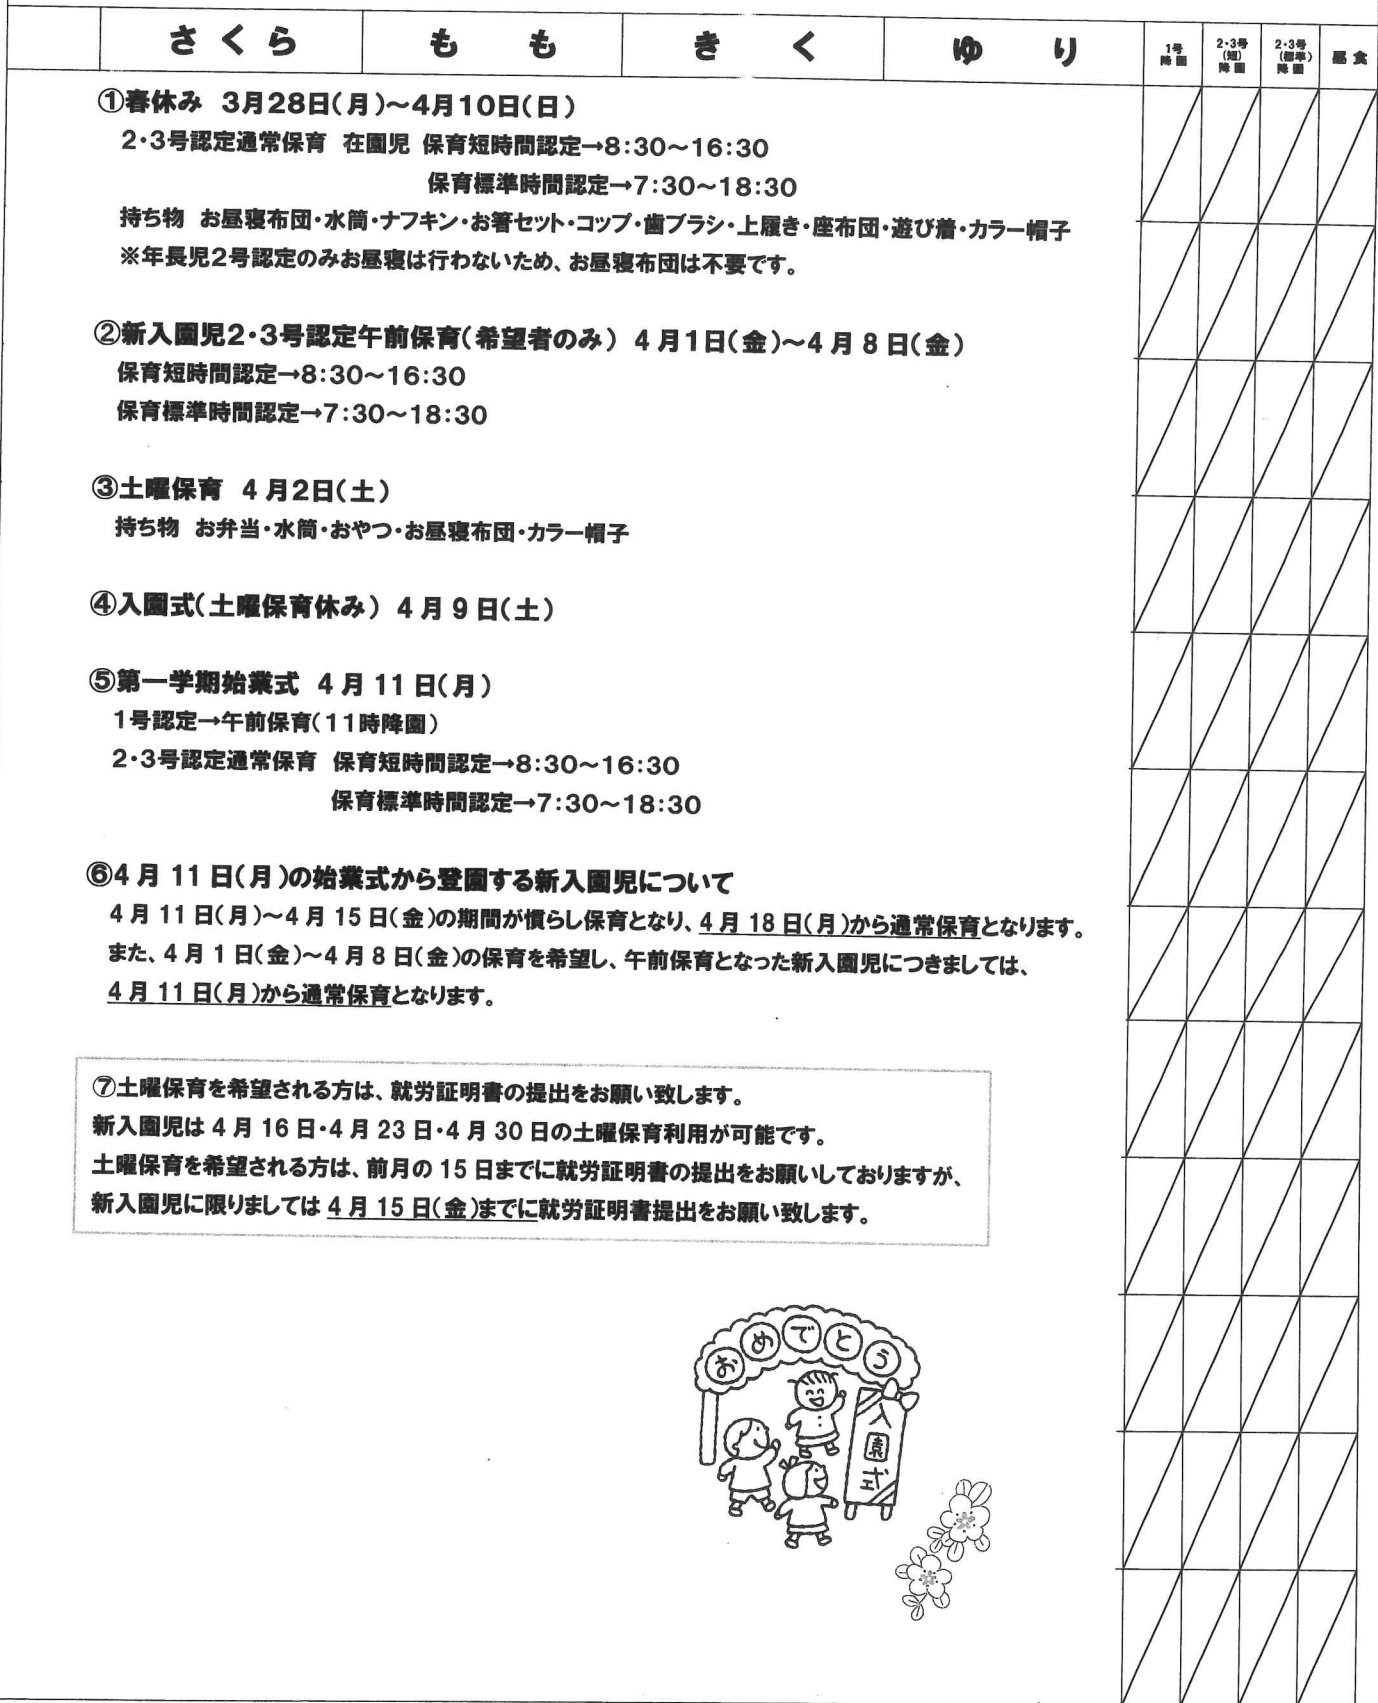 さくら もも きく ゆり 1号降園 2・3号(短)降園 2・3号(標準)降園 昼食
①春休み 3月28日(月)～4月10日(日)
2・3号認定通常保育 在園児 保育短時間認定→8:30～16:30
保育標準時間認定→7:30～18:30
持ち物 お昼寝布団・水筒・ナフキン・お箸セット・コップ・歯ブラシ・上履き・座布団・遊び着・カラー帽子
※年長児2号認定のみお昼寝は行わないため、お昼寝布団は不要です。
②新入園児2・3号認定午前保育(希望者のみ) 4月1日(金)～4月8日(金)
保育短時間認定→8:30～16:30
保育標準時間認定→7:30～18:30
③土曜保育 4月2日(土)
持ち物 お弁当・水筒・おやつ・お昼寝布団・カラー帽子
④入園式(土曜保育休み) 4月9日(土)
⑤第一学期始業式 4月11日(月)
1号認定→午前保育(11時降園)
2・3号認定通常保育 保育短時間認定→8:30～16:30
保育標準時間認定→7:30～18:30
⑥4月11日(月)の始業式から登園する新入園児について
4月11日(月)～4月15日(金)の期間が慣らし保育となり、4月18日(月)から通常保育となります。
また、4月1日(金)～4月8日(金)の保育を希望し、午前保育となった新入園児につきましては、
4月11日(月)から通常保育となります。
⑦土曜保育を希望される方は、就労証明書の提出をお願い致します。
新入園児は4月16日・4月23日・4月30日の土曜保育利用が可能です。
土曜保育を希望される方は、前月の15日までに就労証明書の提出をお願いしておりますが、
新入園児に限りましては4月15日(金)までに就労証明書提出をお願い致します。
おめでとう
入園式